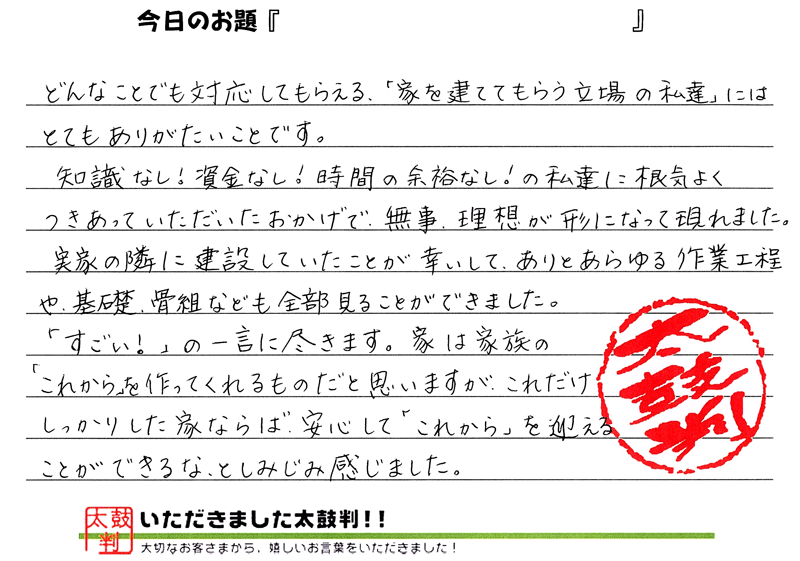 今日のお題『　　　』
どんなことでも対応してもらえる、「家を建ててもらう立場の私達」には
とてもありがたいことです。
知識なし!資金なし!時間の余裕なし!の私達に根気よく
つきあっていただいたおかげで、無事、理想が形になって現れました。
実家の隣に建設していたことが幸いして、ありとあらゆる作業工程
や、基礎、骨組なども全部見ることができました。
「すごい!」の一言に尽きます。家は家族の
「これから」を作ってくれるものだと思いますが、これだけ
しっかりした家ならば、安心して「これから」を迎える
ことができるな、としみじみ感じました。
太鼓判
太鼓判
いただきました太鼓判!!
大切なお客さまから、嬉しいお言葉をいただきました!